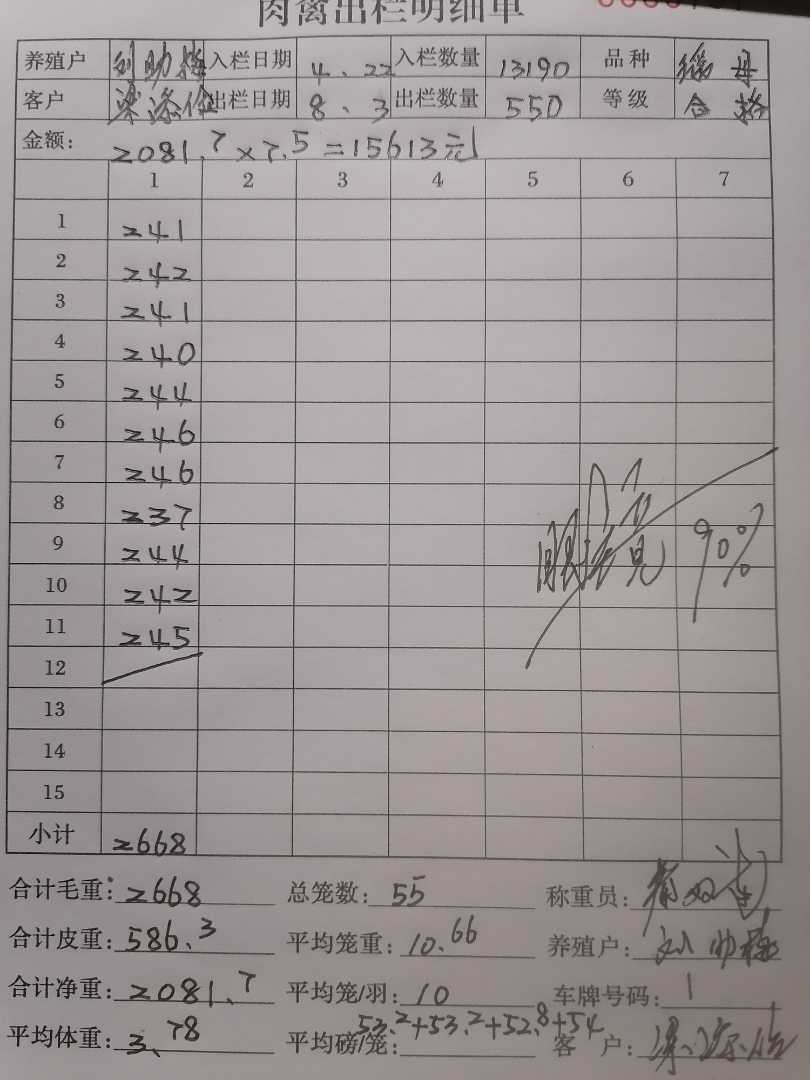 肉禽出栏明细单
养殖户 入栏日期 4.22 入栏数量 13190 品种
客户 出栏日期 8.3 出栏数量 550 等级 合格
金额: 2081.7×7.5=15613元
1 2 3 4 5 6 7
1 241
2 242
3 241
4 240
5 244
6 246
7 246
8 237
9 244
10 242
11 245
90%
12
13
14
15
小计 2668
合计毛重: 2668 总笼数: 55 称重员:
合计皮重: 586.3 平均笼重: 10.66 养殖户:
合计净重: 2081.7 平均笼/羽: 10 车牌号码: 1
平均体重: 3.78 平均磅/笼: 53.2+53.2+52.8+54 客户: